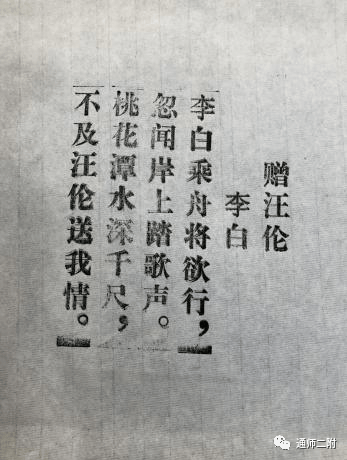 赠汪伦
李白
李白乘舟将欲行，
忽闻岸上踏歌声。
桃花潭水深千尺，
不及汪伦送我情。
通师二附